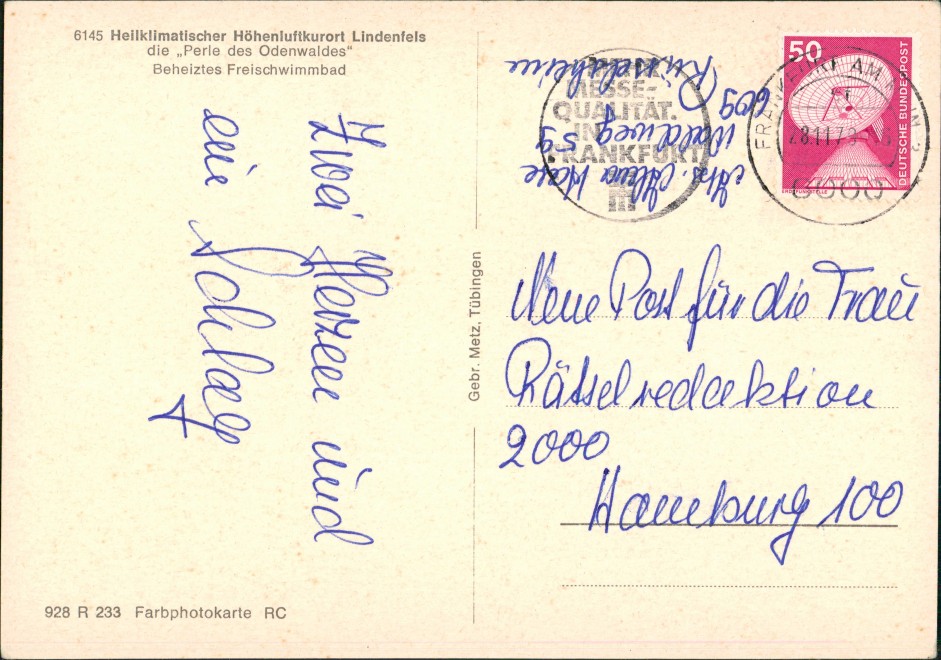 6145 Heilklimatischer Höhenluftkurort Lindenfels
die „Perle des Odenwaldes“
Beheiztes Freischwimmbad
Zwei Herzen und
ein Schlag
928 R 233 Farbphotokarte RC
Gebr. Metz, Tübingen
MESSE-
QUALITÄT.
IN
FRANKFURT
50
DEUTSCHE BUNDESPOST
ERDFUNKSTELLE
FRANKFURT AM MAIN 2
28.11.7
6000
Abs.
Waldweg 59
609 Rüsselsheim
Neue Post für die Frau
Rätselredaktion
2000
Hamburg 100